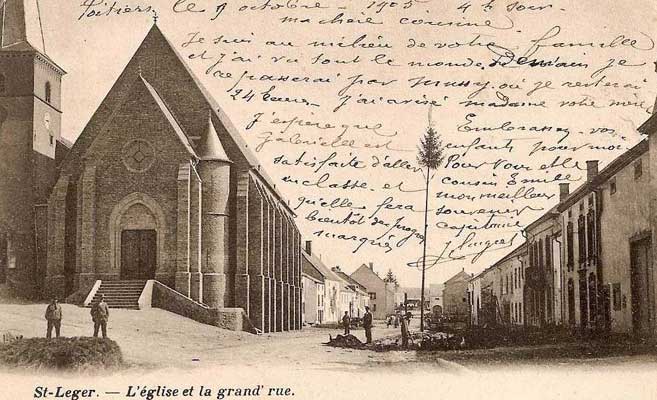 Poitiers, le 9 octobre 1905 4h soir
ma chère cousine
Je suis au milieu de votre famille
et j'ai vu tout le monde Demain je
repasserai par où je resterai
24 heures J'ai avisé madame votre mère
J'espère que
Gabrielle est
satisfaite d'aller
en classe et
qu'elle fera
bientôt des progrès
marqués
Embrassez vos
enfants pour moi
Pour Vous et le
cousin Emile
mon meilleur
souvenir
St-Leger. — L'église et la grand' rue.